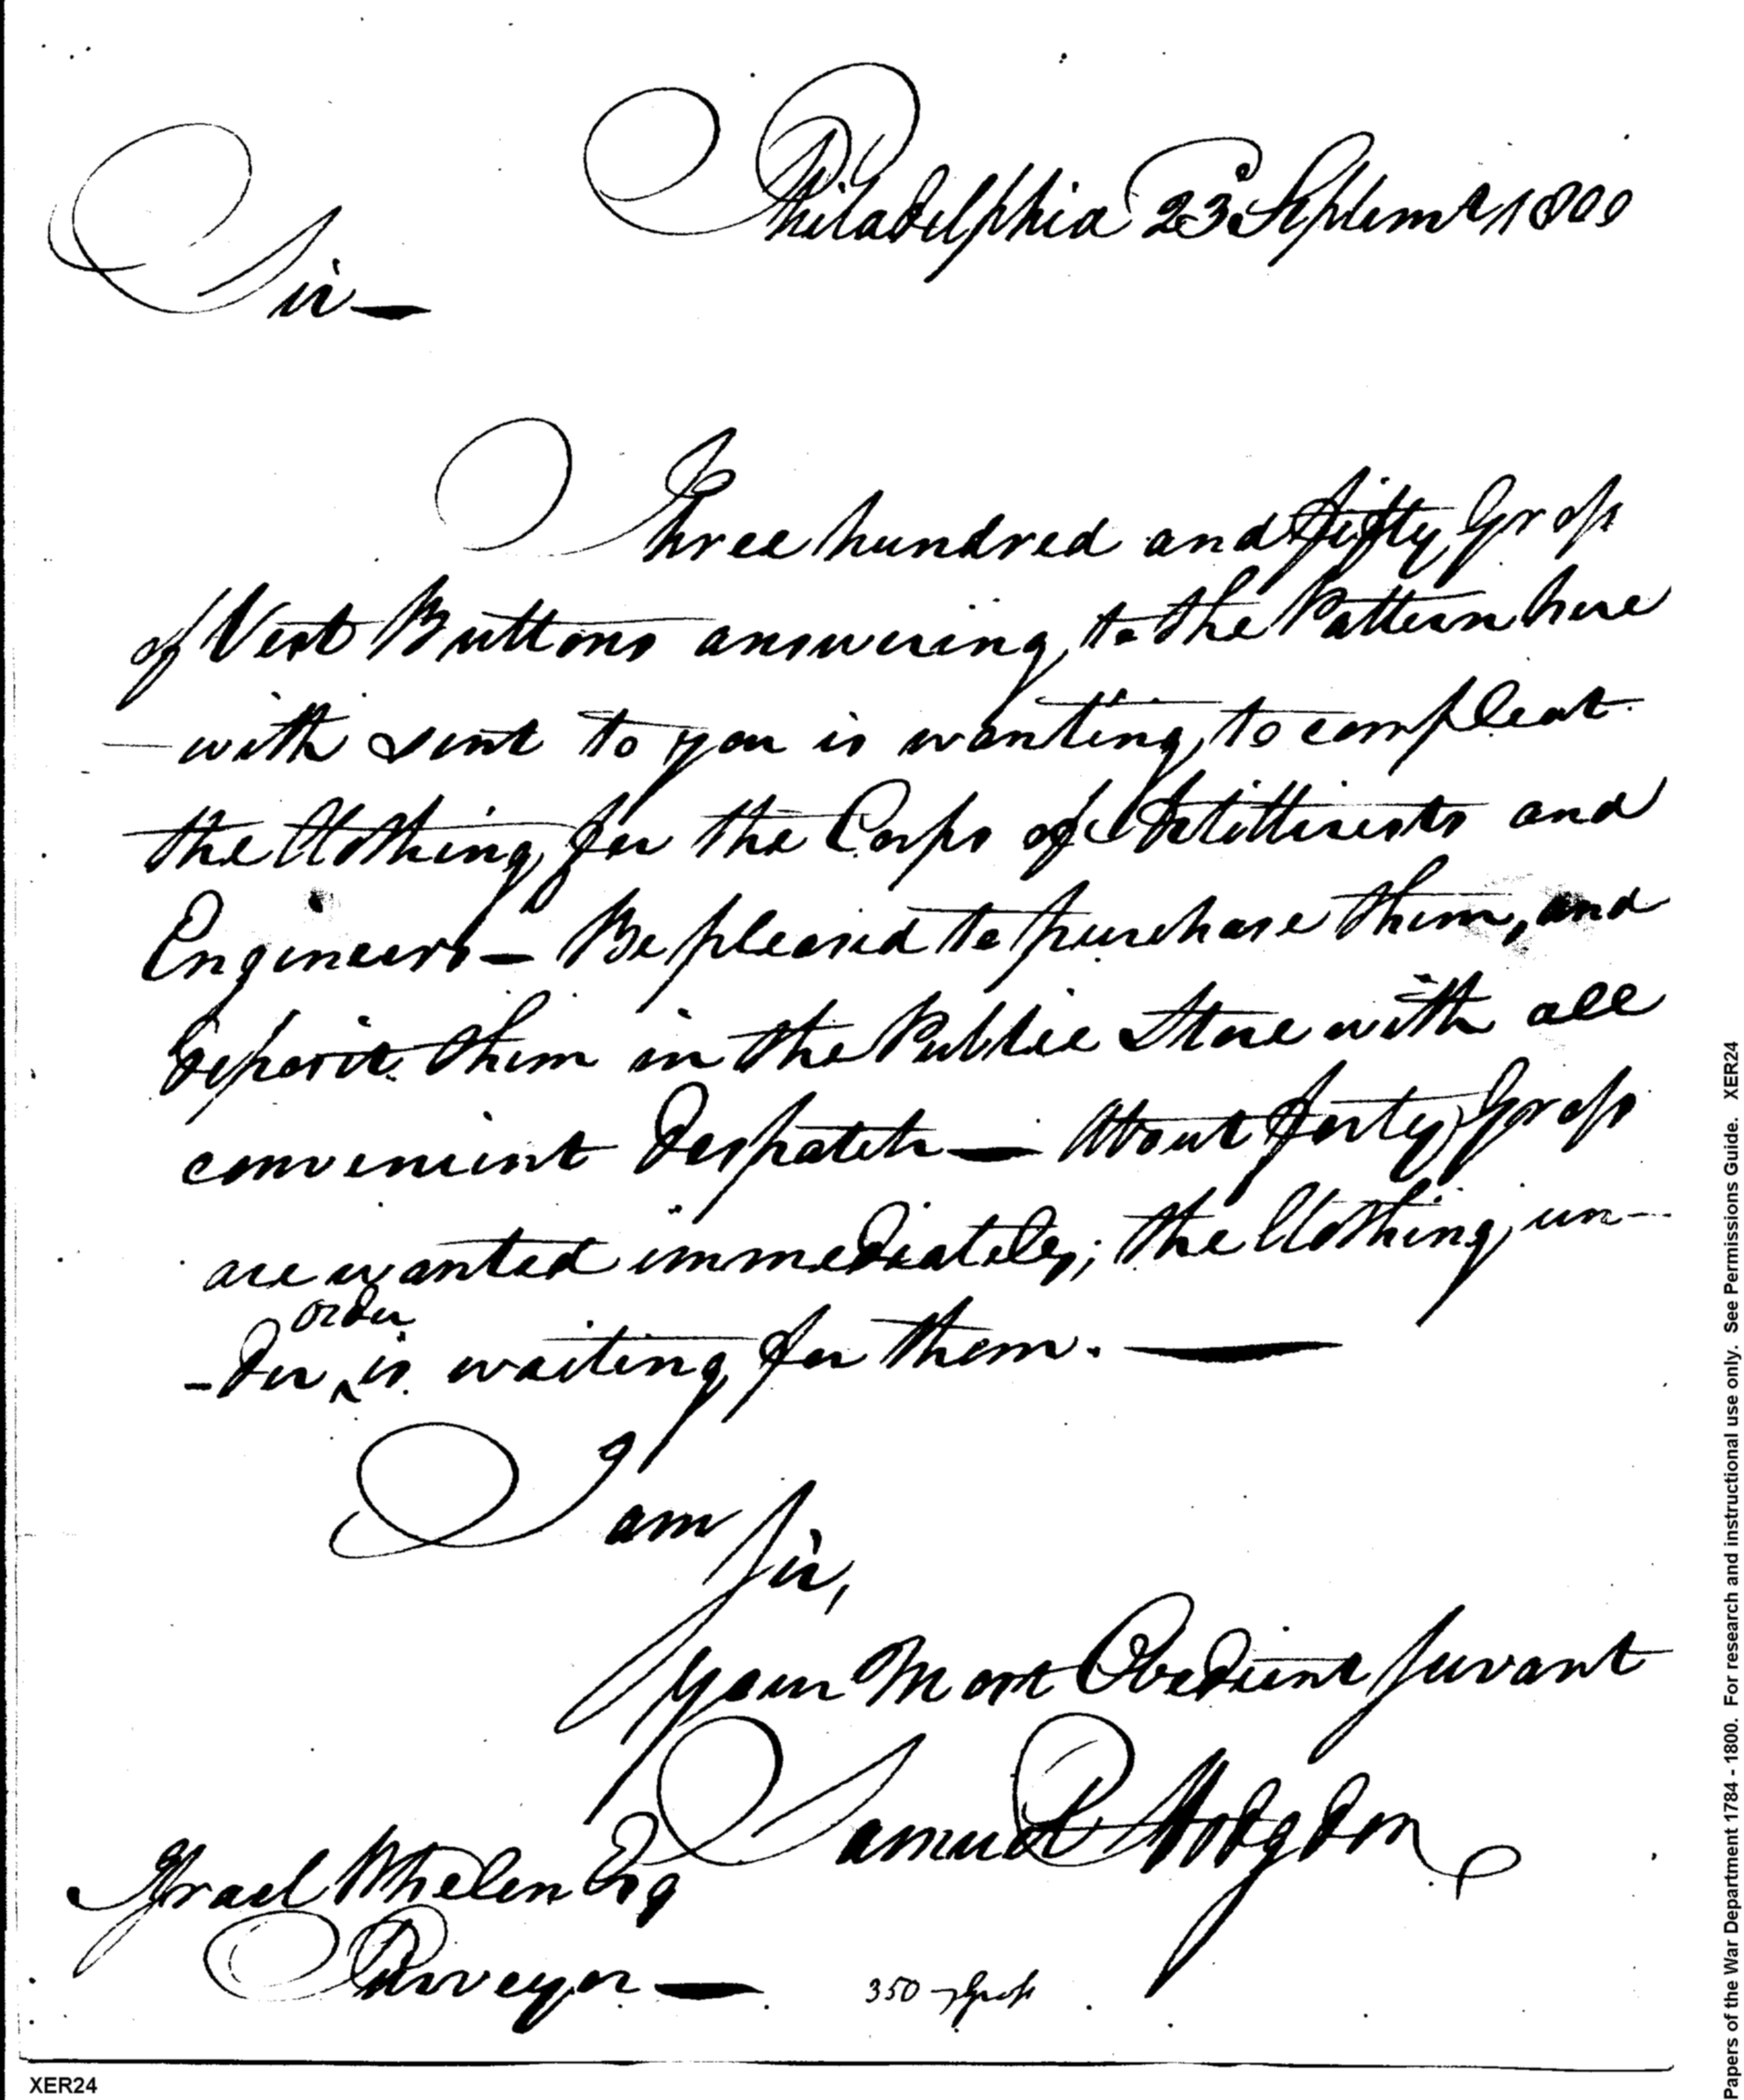 Philadelphia 23d Septemr 1800
Sir —
Three hundred and fifty Gross
of Vest Buttons answering to the Pattern here
— with sent to you is wanting to compleat
the Clothing for the Corps of Artillerists and
Engineers — Be pleased to purchase them, and
deposit them in the Public Store with all
convenient despatch — About forty Gross
are wanted immediately; the Clothing un-
order
- der ^ is waiting for them. —
I am
Sir,
your Most Obedient Servant
Samuel Hodgdon
Israel Whelen Esq
Purveyor —
350 Gross
XER24
Papers of the War Department 1784 - 1800. For research and instructional use only. See Permissions Guide. XER24